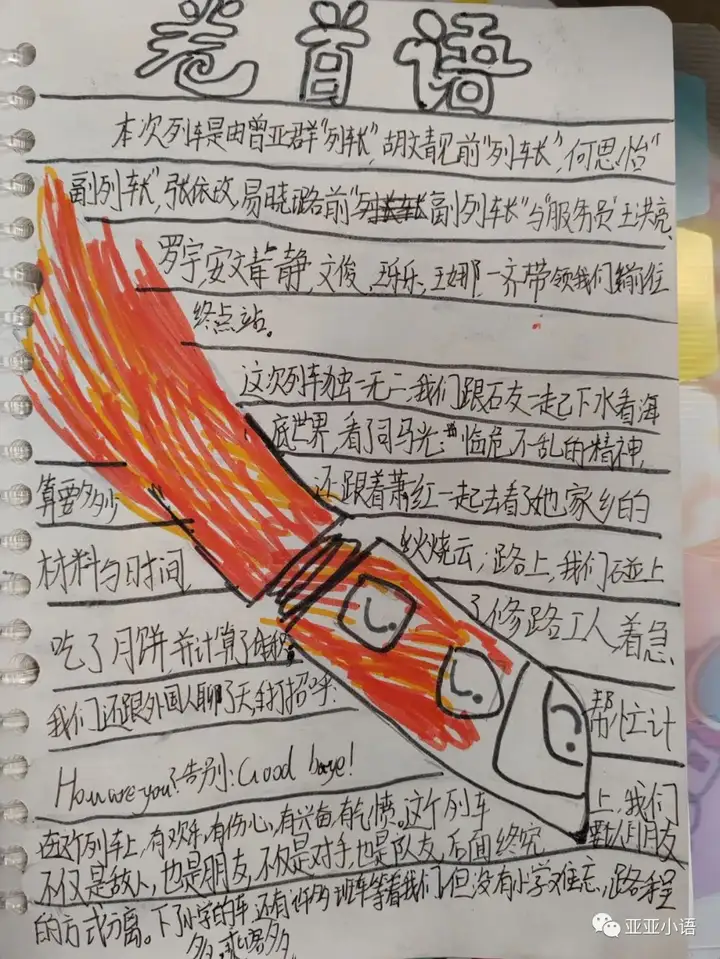 卷首语
本次列车是由曾亚群"列车长",胡文靓前"列车长",何思怡"
副列车长",张依玫,易晓璐前"副列车长"与"服务员"王洪亮,
罗宇,安文静,文俊,王乐乐,王娜,一齐带领我们前往
终点站。
这次列车独一无二,我们跟石友一起下水看海
底世界,看了司马光:临危不乱的精神,
还跟着萧红一起去看了她家乡的
火烧云;路上,我们碰上
了修路工人,着急
帮忙计
算要多少
材料与时间,
上,我们
吃了月饼,并计算了
我们还跟外国人聊了天,打招呼:
How are you?告别:Good baye!
在这个列车上,有欢乐,有伤心,有兴奋,有气愤。这个列车
不仅是敌人,也是朋友,不仅是对手,也是队友,后面终究
的方式分离。下了小学的车,还有许多班车等着我们,但没有小学难忘,路程
多,乘客多
亚亚小语